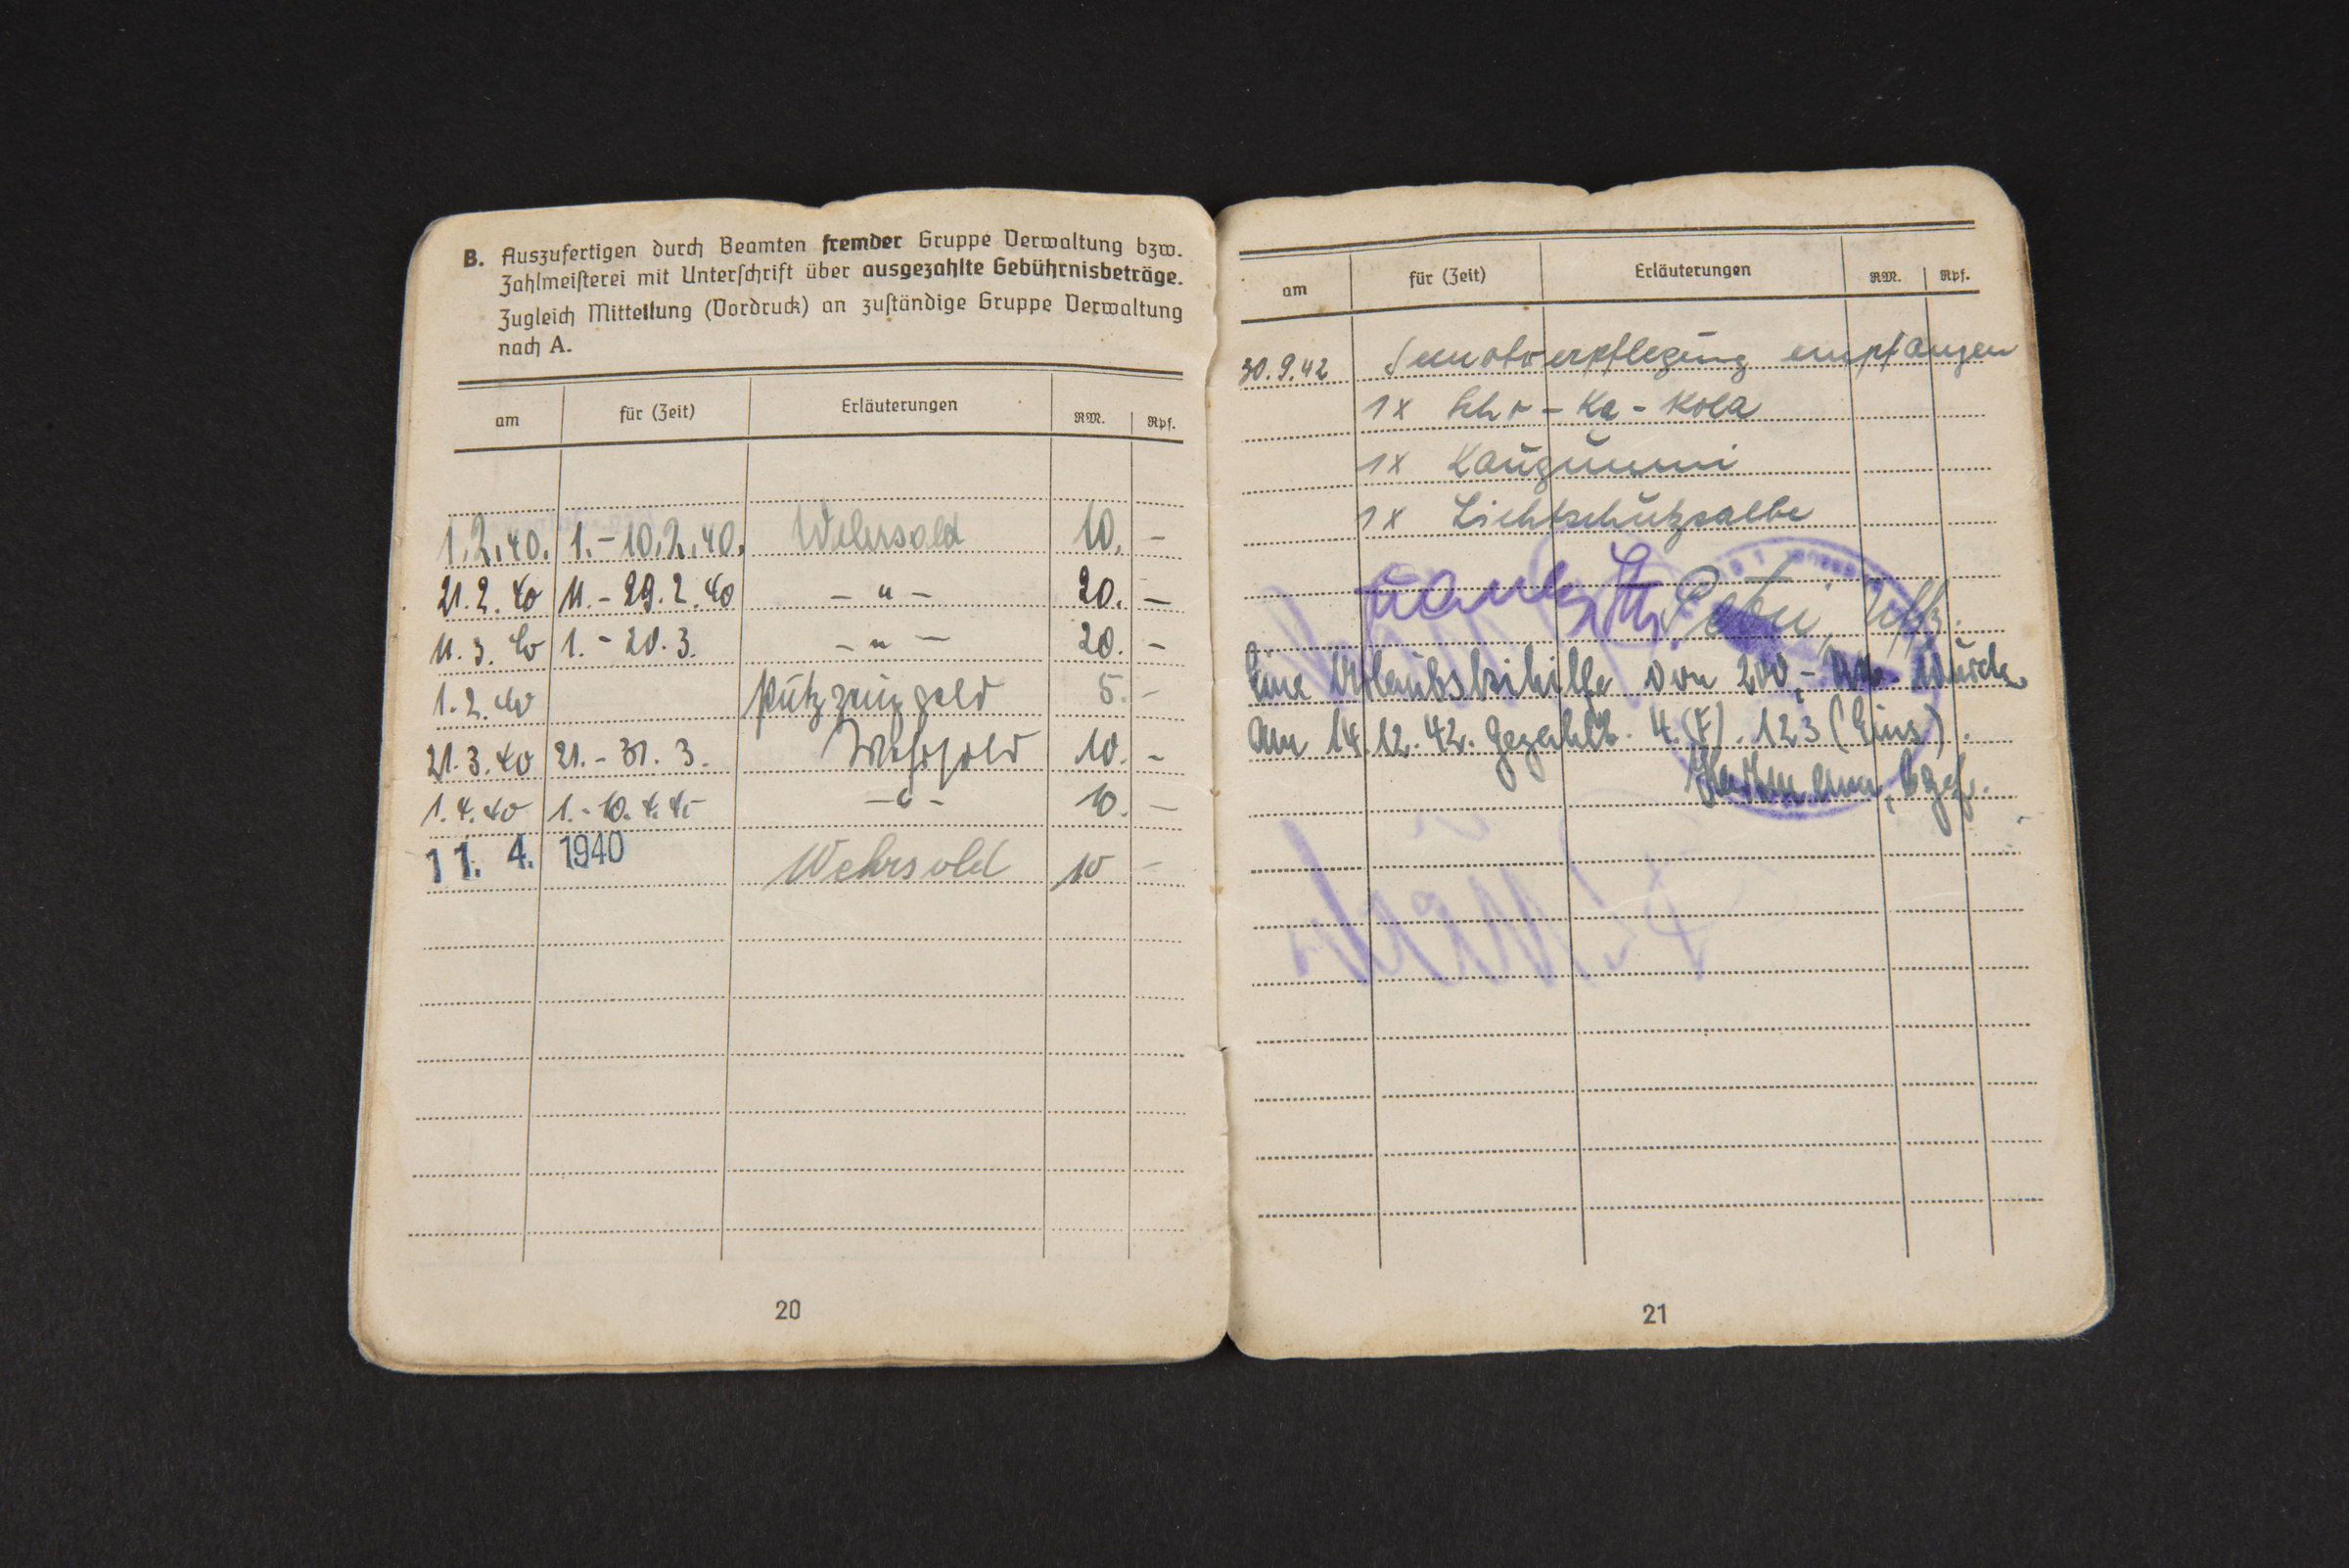 B. Auszufertigen durch Beamten fremder Gruppe Verwaltung bzw.
Zahlmeisterei mit Unterschrift über ausgezahlte Gebührnisbeträge.
Zugleich Mitteilung (Vordruck) an zuständige Gruppe Verwaltung
nach A.
am für (Zeit) Erläuterungen RM. Rpf.
1.2.40. 1.-10.2.40. Wehrsold 10. -
21.2.40 11.-29.2.40 - " - 20. -
11.3.40 1.-20.3. - " - 20. -
1.2.40 Putzzeuggeld 5. -
21.3.40 21.-31.3. Wehrsold 10. -
1.4.40 1.-10.4.40 - " - 10. -
11. 4. 1940 Wehrsold 10 -
20
am für (Zeit) Erläuterungen RM. Rpf.
30.9.42 Seenotverpflegung empfangen
1x Scho-Ka-Kola
1x Kaugummi
1x Lichtschutzsalbe
Uffz.
Eine Urlaubsbeihilfe von 200,- RM. wurde
am 14.12.42. gezahlt. 4.(F).123 (Eins).
21